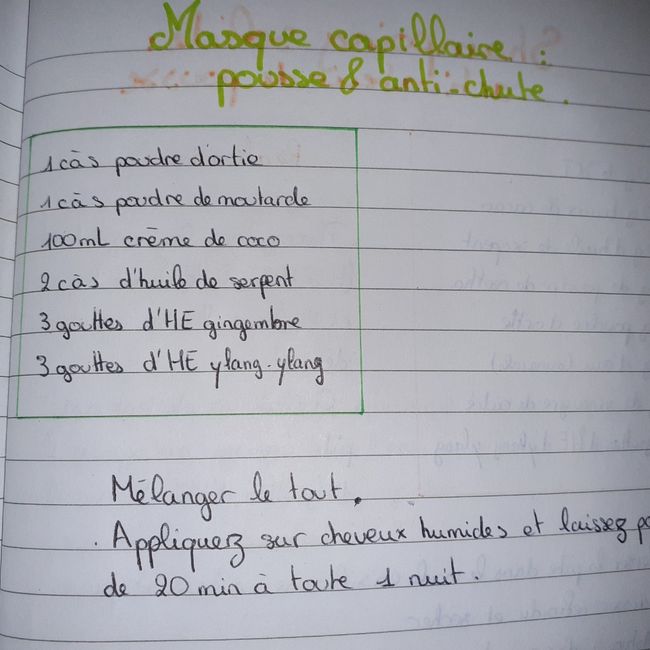 Masque capillaire :
pousse & anti-chute.
1 càs poudre d'ortie
1 càs poudre de moutarde
100mL crème de coco
2 càs d'huile de serpent
3 gouttes d'HE gingembre
3 gouttes d'HE ylang-ylang
Mélanger le tout.
. Appliquez sur cheveux humides et laissez
de 20 min à toute 1 nuit.